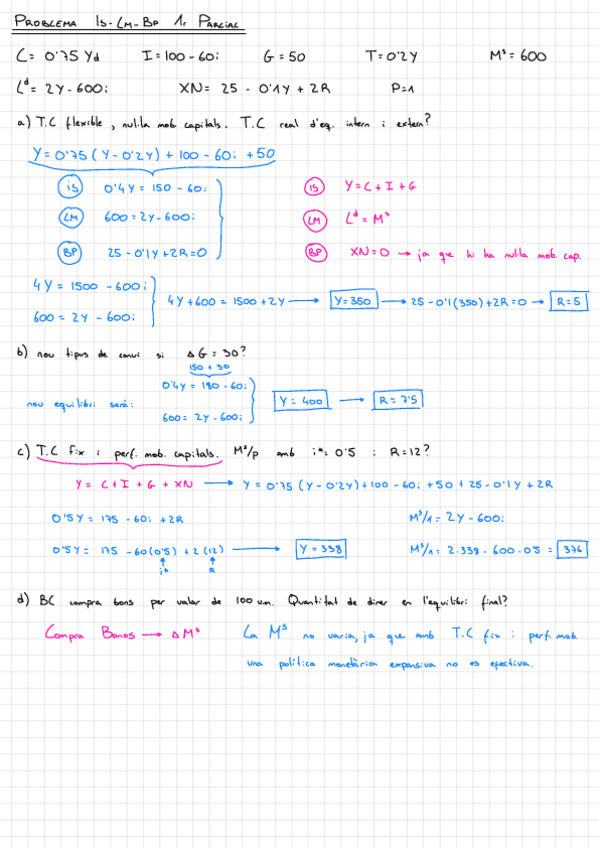 PROBLEMA IS-LM-BP 1r PARCIAL
C = 0'75 Yd   I = 100 - 60i   G = 50   T = 0'2Y   Mˢ = 600
Lᵈ = 2Y - 600i   XN = 25 - 0'1Y + 2R   P=1
a) T.C flexible, nul·la mob. capitals. T.C real d'eq. intern i extern?
Y = 0'75 (Y - 0'2Y) + 100 - 60i + 50
IS   0'4Y = 150 - 60i   IS   Y = C + I + G
LM   600 = 2Y - 600i   LM   Lᵈ = Mˢ
BP   25 - 0'1Y + 2R = 0   BP   XN = 0 → ja que hi ha nul·la mob. cap.
4Y = 1500 - 600i
600 = 2Y - 600i
4Y + 600 = 1500 + 2Y → Y = 350 → 25 - 0'1(350) + 2R = 0 → R = 5
b) nou tipus de canvi si ΔG = 30?
150 + 30
nou equilibri serà:   0'4Y = 180 - 60i
600 = 2Y - 600i
Y = 400 → R = 7'5
c) T.C fix i perf. mob. capitals. Mˢ/p amb i* = 0'5 i R = 12?
Y = C + I + G + XN → Y = 0'75 (Y - 0'2Y) + 100 - 60i + 50 + 25 - 0'1Y + 2R
0'5Y = 175 - 60i + 2R   Mˢ/1 = 2Y - 600i
0'5Y = 175 - 60(0'5) + 2(12) → Y = 338   Mˢ/1 = 2·338 - 600·0'5 = 376
i*   R
d) BC compra bons per valor de 100 um. Quantitat de diner en l'equilibri final?
Compra Bonos → ΔMˢ   La Mˢ no varia, ja que amb T.C fix i perf. mob.
una política monetària expansiva no es efectiva.